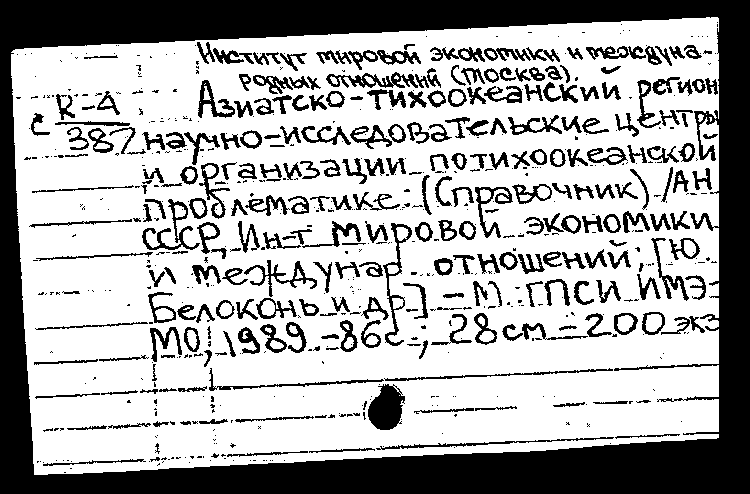 Институт мировой экономики и междуна-
родных отношений (Москва).
с К-4 Азиатско-тихоокеанский регион
387 научно-исследовательские центры
и организации по тихоокеанской
проблематике: (Справочник) / АН
СССР, Ин-т мировой экономики
и междунар. отношений; [Ю.
Белоконь и др.] - М.: ГПСИ ИМЭ-
МО, 1989. - 86с.; 28см - 200 экз